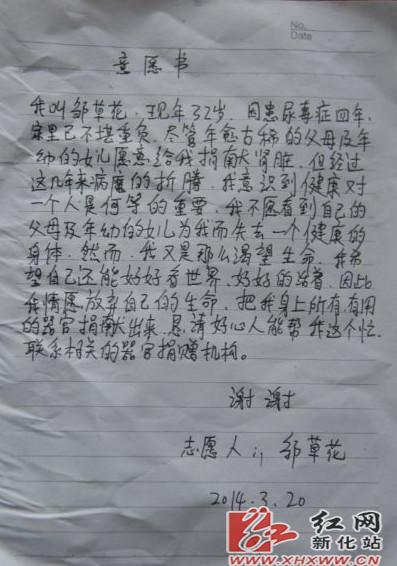 No.
Date
意愿书
我叫邹草花，现年32岁，因患尿毒症四年，
家里已不堪重负，尽管年愈古稀的父母及年
幼的女儿愿意给我捐献肾脏，但经过
这几年来病魔的折腾，我意识到健康对
一个人是何等的重要，我不愿看到自己的
父母及年幼的女儿为我而失去一个健康的
身体，然而，我又是那么渴望生命，我希
望自己还能好好看世界，好好的活着，因此
我情愿放弃自己的生命，把我身上所有有用
的器官捐献出来，恳请好心人能帮我这个忙，
联系相关的器官捐赠机构。
谢谢
志愿人：邹草花
2014.3.20
红网
新化站
www.XHXWW.CN